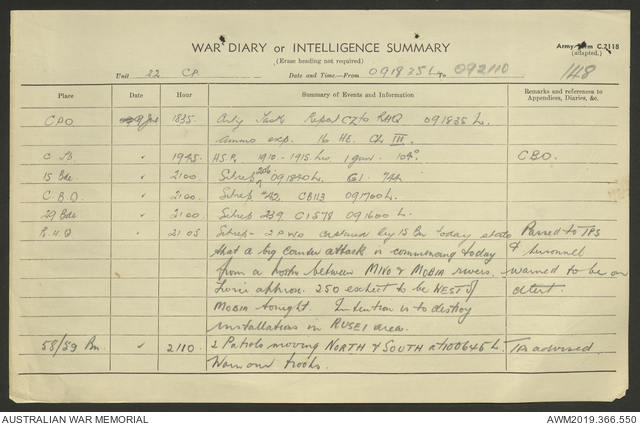 WAR DIARY or INTELLIGENCE SUMMARY
Army Form C.2118
(adapted.)
(Erase heading not required)
Unit 22 CP Date and Time—From 091835L To 092110
148
Place Date Hour Summary of Events and Information Remarks and references to Appendices, Diaries, &c.
CPO 9 1835 Arty Task Report CZ to RHQ 091835 L.
Ammo exp. 16 HE. Ch III.
C B. " 1945 H.S.P. 1910-1915 hrs 1 gun. 104° CBO.
15 Bde " 2100 Sitrep 091830L.
C.B.O. " 2100 Sitrep CB113 091700L.
29 Bde " 2100 Sitrep 239 C1578 091600 L.
R H Q " 2105 Sitrep - 2 PWO captured by 15 Bn today state Passed to TPS
that a big counter attack is commencing today & personnel
from a between MIVO & MOBIA rivers. warned to be on
approx. 250 expect to be WEST of alert.
MOBIA tonight. Intention is to destroy
installations in RUSEI area.
58/59 Bn " 2110 2 Patrols moving NORTH & SOUTH at 100645 L. advised
Warn our troops.
AUSTRALIAN WAR MEMORIAL AWM2019.366.550